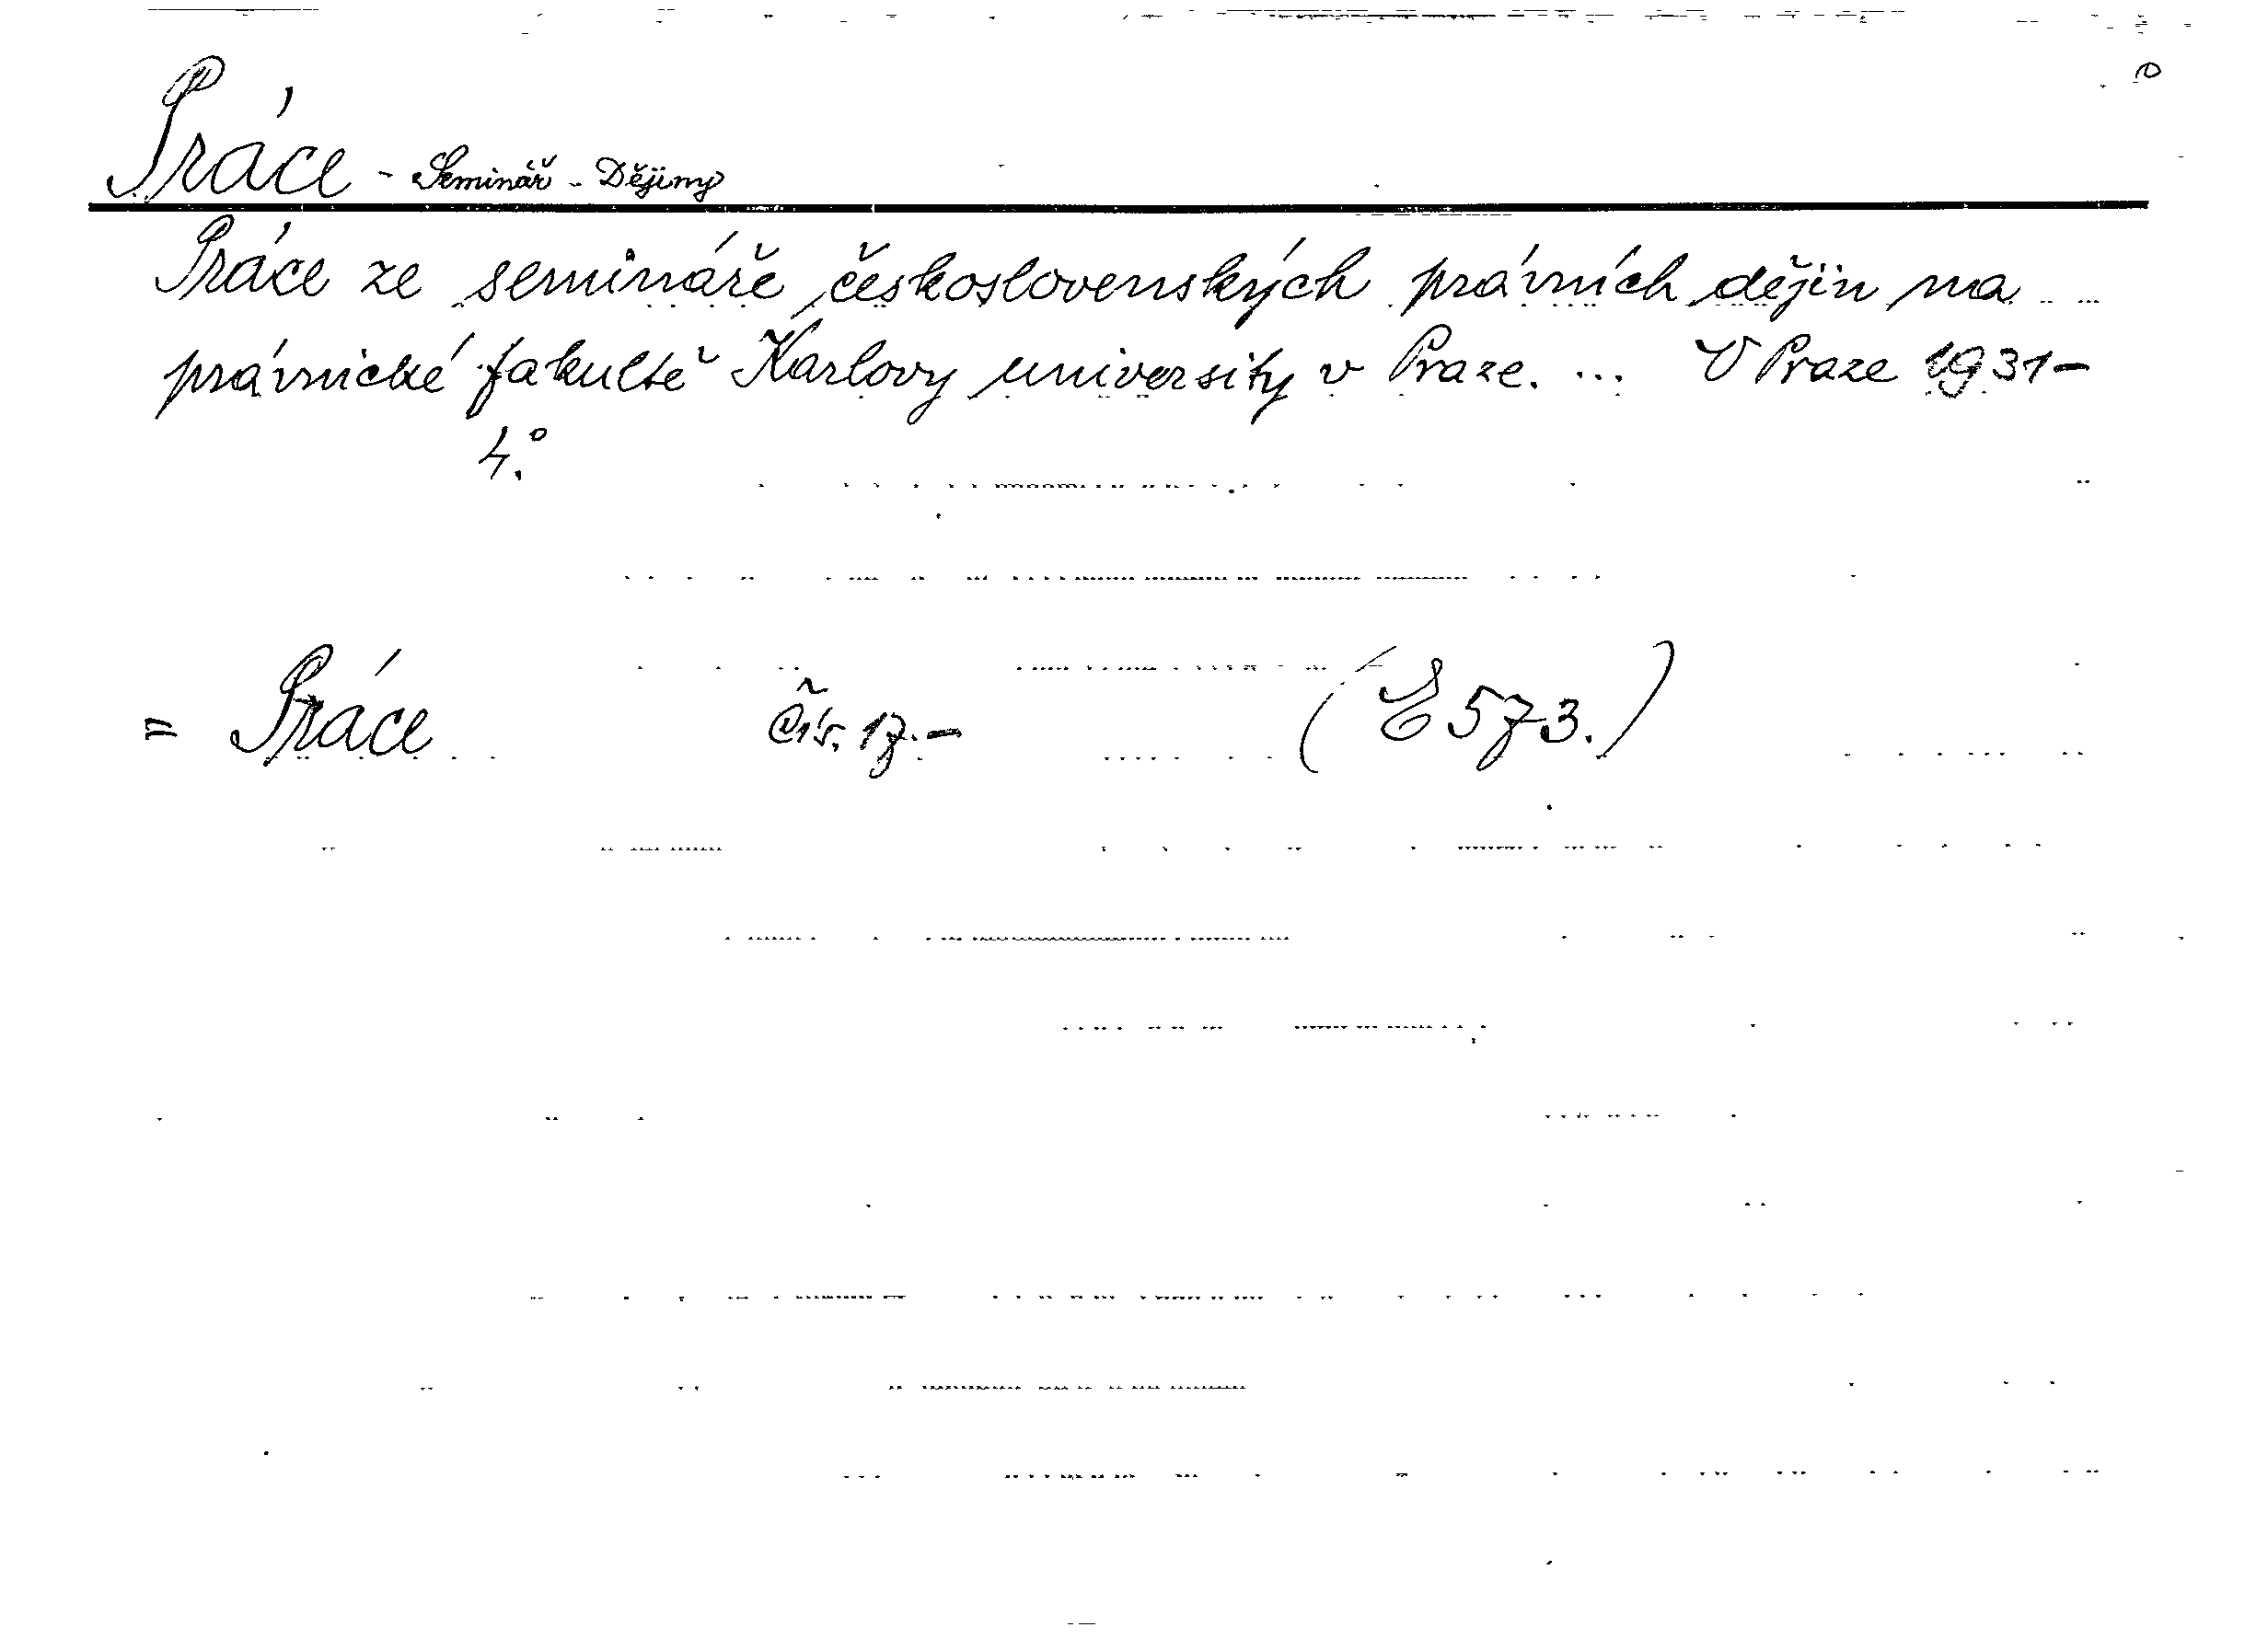 Práce - Seminář - Dějiny
Práce ze semináře československých právních dějin na
právnické fakultě Karlovy university v Praze. ... V Praze 1931-
4.°
= Práce čís. 17.- (E 573.)